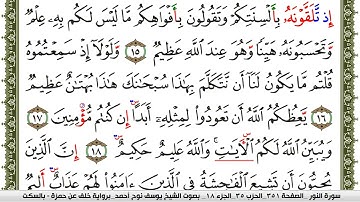 إِذْ تَلَقَّوْنَهُۥ بِأَلْسِنَتِكُمْ وَتَقُولُونَ بِأَفْوَاهِكُم مَّا لَيْسَ لَكُم بِهِۦ عِلْمٌ
وَتَحْسَبُونَهُۥ هَيِّنًا وَهُوَ عِندَ اللَّهِ عَظِيمٌ ١٥ وَلَوْلَآ إِذْ سَمِعْتُمُوهُ
قُلْتُم مَّا يَكُونُ لَنَآ أَن نَّتَكَلَّمَ بِهَٰذَا سُبْحَٰنَكَ هَٰذَا بُهْتَٰنٌ عَظِيمٌ
١٦ يَعِظُكُمُ اللَّهُ أَن تَعُودُوا لِمِثْلِهِۦٓ أَبَدًا إِن كُنتُم مُّؤْمِنِينَ ١٧
وَيُبَيِّنُ اللَّهُ لَكُمُ الْأٓيَٰتِ وَاللَّهُ عَلِيمٌ حَكِيمٌ ١٨ إِنَّ الَّذِينَ
يُحِبُّونَ أَن تَشِيعَ الْفَٰحِشَةُ فِي الَّذِينَ ءَامَنُوا لَهُمْ عَذَابٌ أَلِيمٌ
سورة النور _ الصفحة ٣٥١ _ الحزب ٣٥ _ الجزء ١٨ _ بصوت الشيخ يوسف نوح أحمد _ برواية خلف عن حمزة - بالسكت